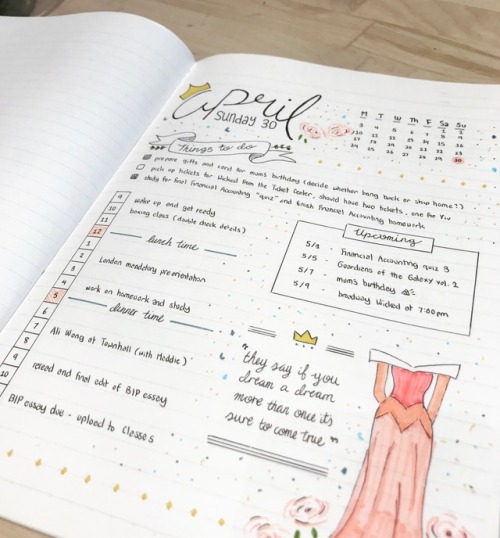 April
Sunday 30
M T W Th F Sa Su
1 2
3 4 5 6 7 8 9
10 11 12 13 14 15 16
17 18 19 20 21 22 23
24 25 26 27 28 29 30
Things to do
prepare gifts and card for mom's birthday (decide whether bring back or ship home?)
pick up tickets for Wicked from the Ticket Center, should have two tickets, one for Viv
study for final Financial Accounting "quiz" and finish Financial Accounting homework
9 wake up and get ready
10 boxing class (double check details)
11
12 lunch time
1
2 London mandatory presentation
3
4 work on homework and study
5 dinner time
6
7 Ali Wong at Townhall (with Maddie)
8
9 reread and final edit of BIP essay
10
BIP essay due - upload to Classes
Upcoming
5/3 - Financial Accounting quiz 3
5/5 - Guardians of the Galaxy vol. 2
5/7 - mom's birthday
5/9 - broadway Wicked at 7:00pm
"they say if you
dream a dream
more than once it's
sure to come true"